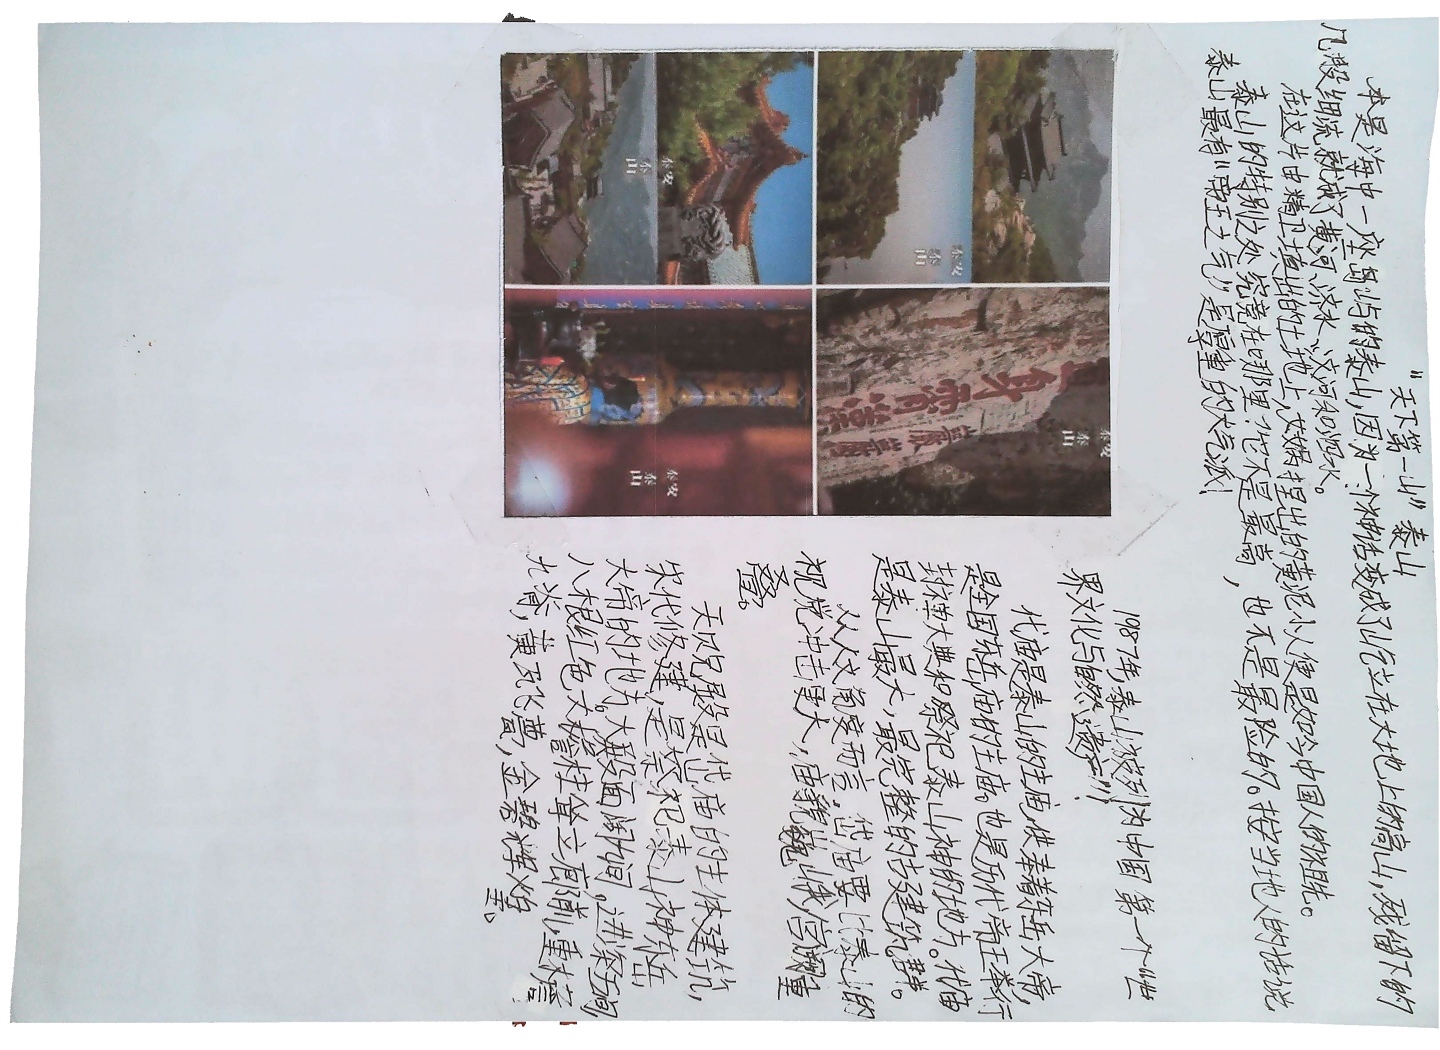 “天下第一山” 泰山
本是海中一座岛屿的泰山,因为一个神话变成了屹立在大地上的高山,残留下的
几股细流就成了黄河、济水、淤河和泥水。
在这片由精卫填出的土地上,女娲捏出的黄泥小人便是如今中国人的祖先。
泰山的特别之处究竟在哪里?它不是最高,也不是最险的。按当地人的话说
泰山最有“帝王之气”是厚重的大气派!
1987年,泰山被列为中国第一个世
界文化与自然遗产!!!
岱庙是泰山的主庙,供奉着东岳大帝,
是全国东岳庙的主庙。也是历代帝王举行
封禅大典和祭祀泰山神的地方。岱庙
是泰山最大、最完整的古建筑群。
从人文角度而言,岱庙要比泰山的
视觉冲击更大,庙貌巍峨,宫阙重
叠。
天贶殿是岱庙的主体建筑,
宋代修建,是祭祀泰山神东岳
大帝的地方。大殿面阔九间,进深五间,
八根红色大檐柱耸立廊前,重檐
八脊,黄瓦飞甍,金碧辉煌
至。
泰安
泰山
泰安
泰山
泰安
泰山
泰安
泰山
泰安
泰山